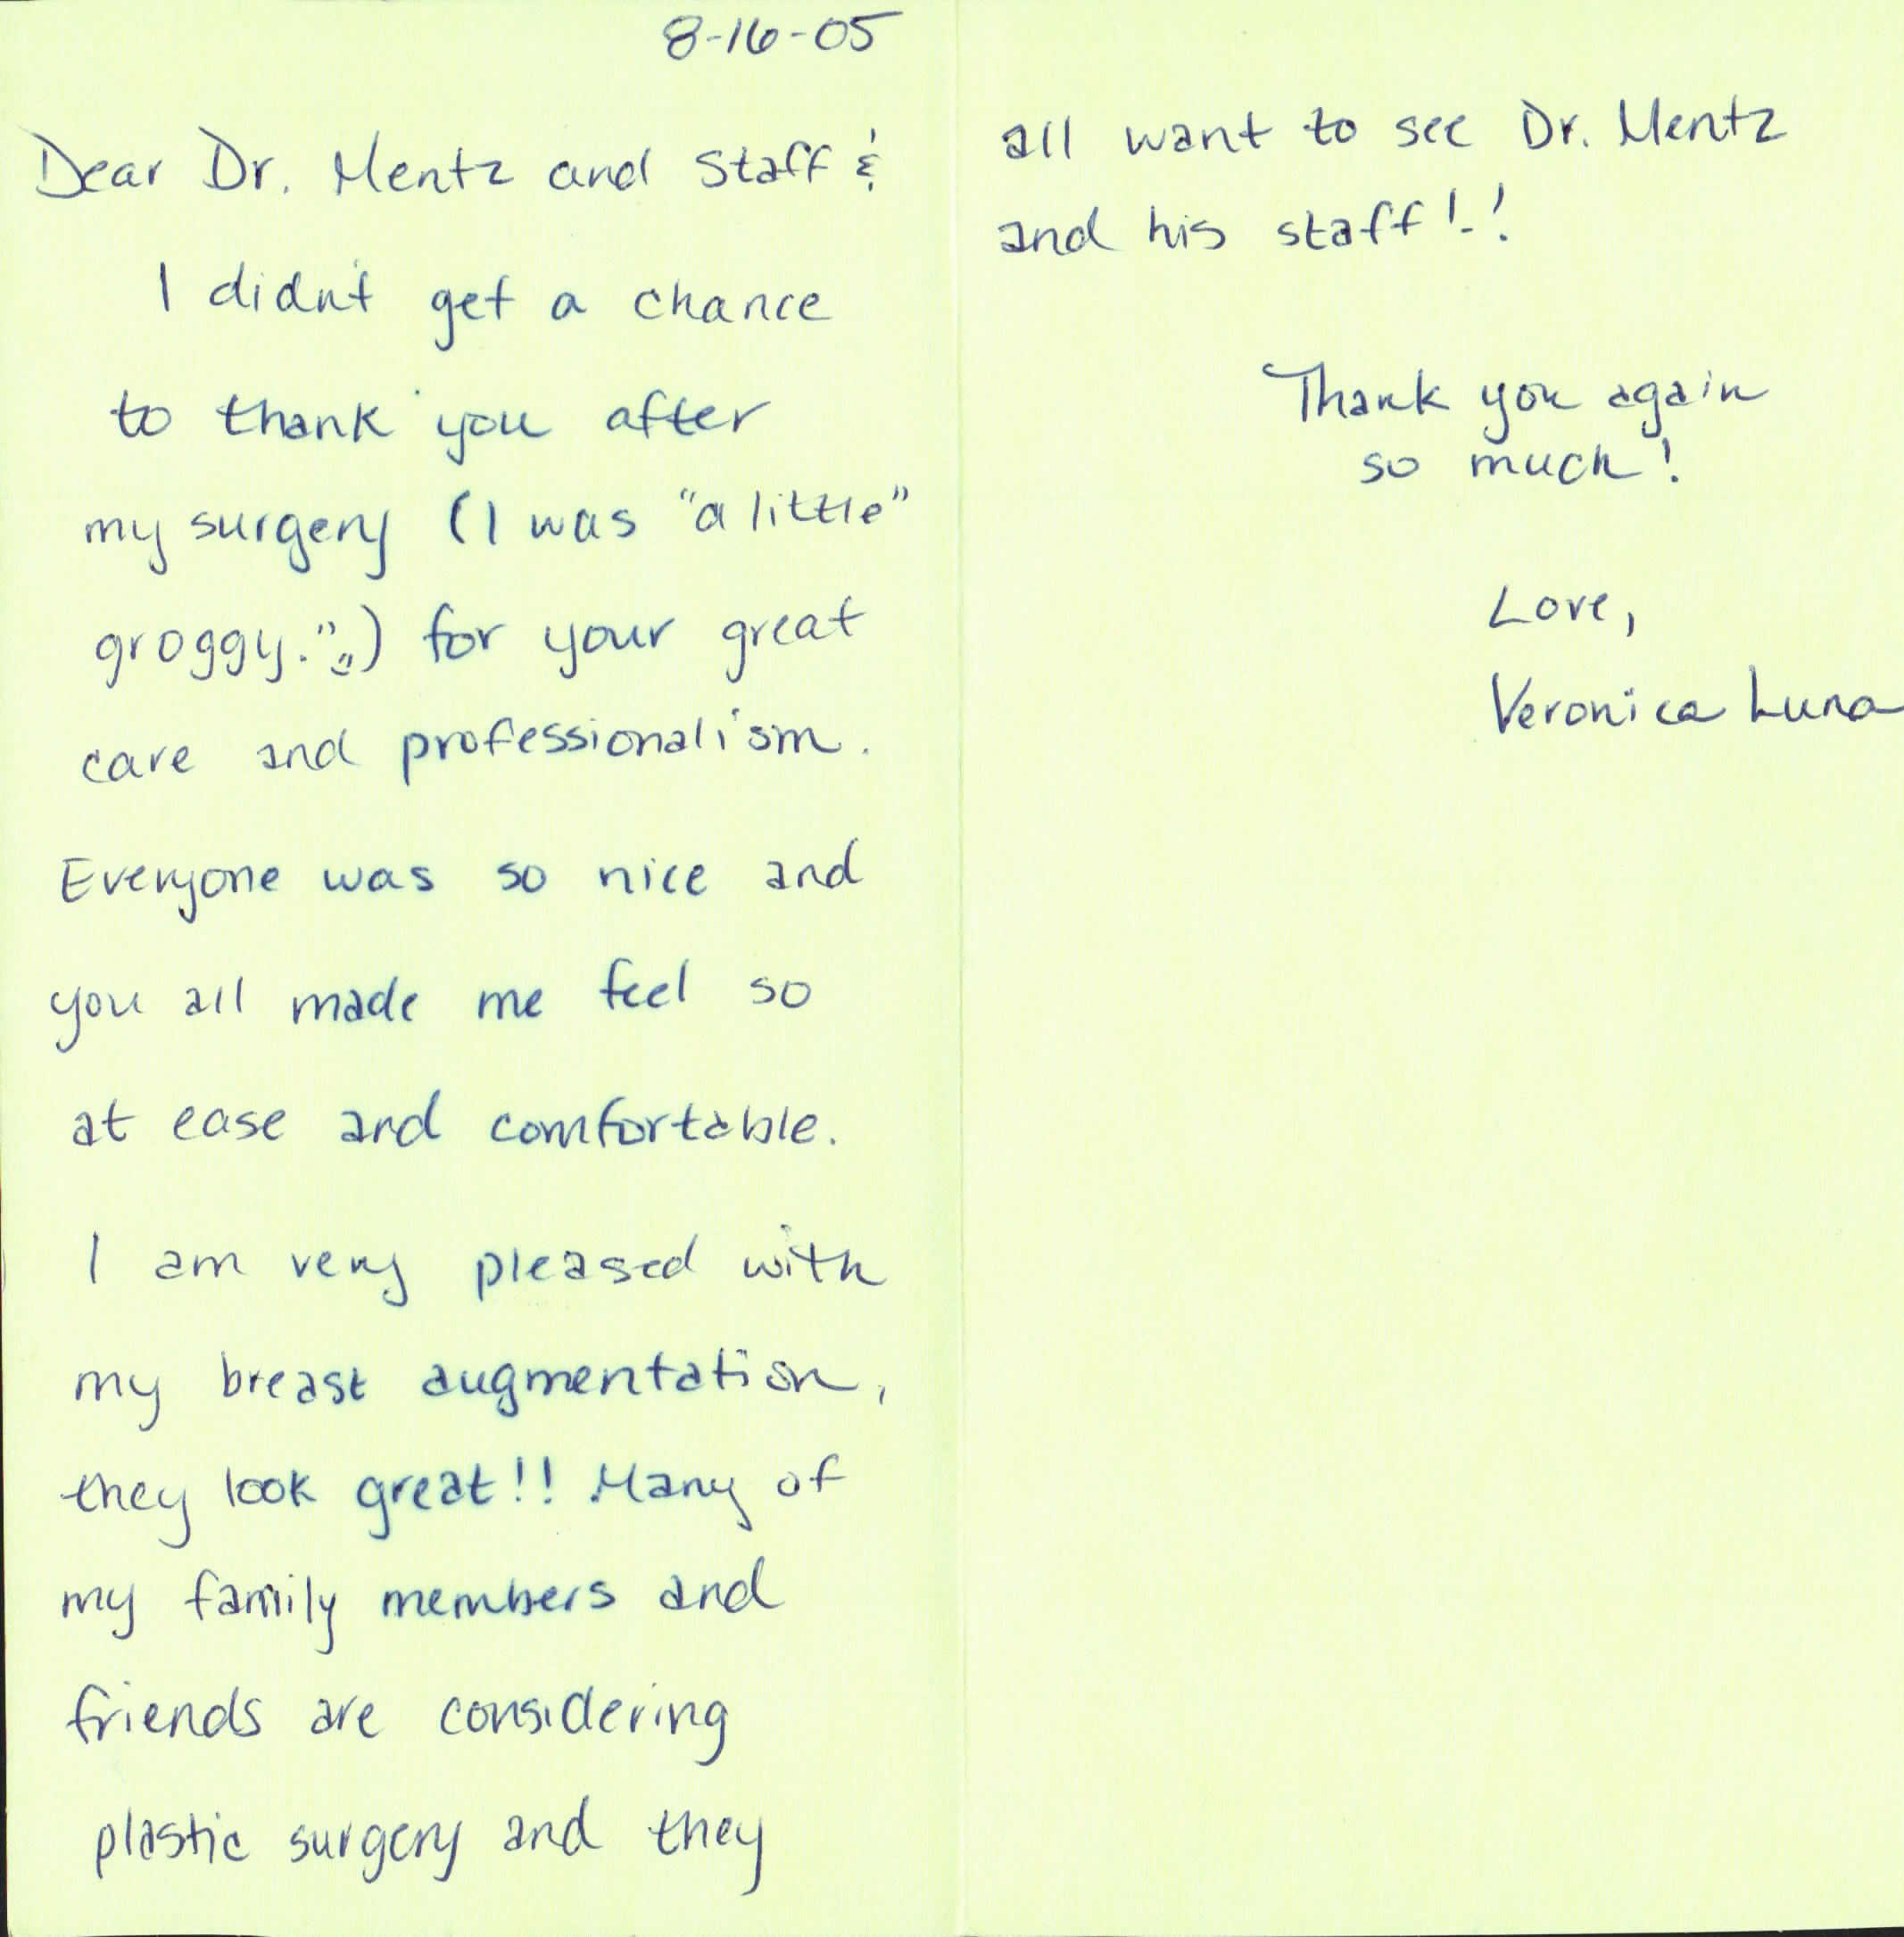 8-16-05
Dear Dr. Mentz and Staff :
I didn't get a chance
to thank you after
my surgery (I was "a little"
groggy.) for your great
care and professionalism.
Everyone was so nice and
you all made me feel so
at ease and comfortable.
I am very pleased with
my breast augmentation,
they look great!! Many of
my family members and
friends are considering
plastic surgery and they
all want to see Dr. Mentz
and his staff!!
Thank you again
so much!
Love,
Veronica Luna